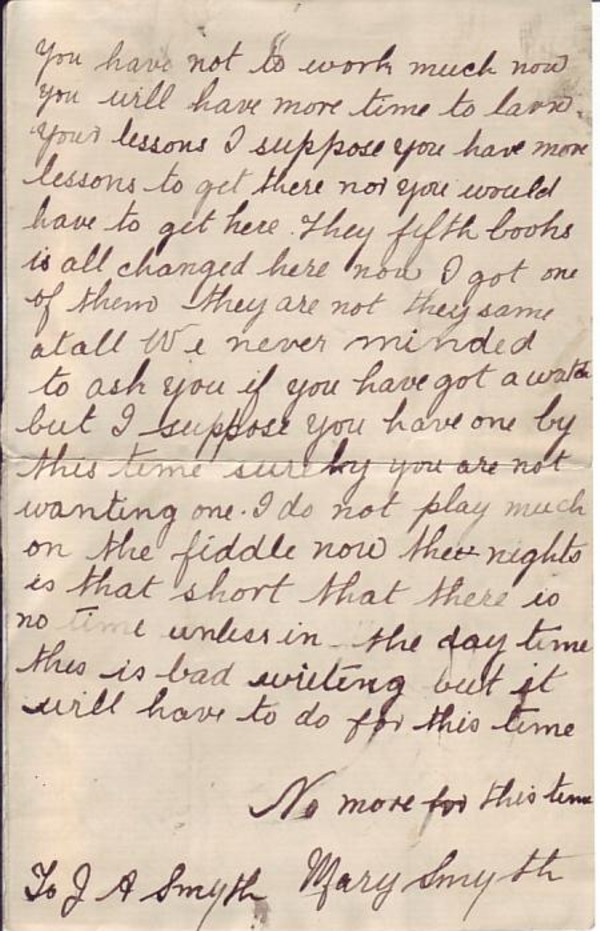 you have not to work much now
you will have more time to larn
your lessons I suppose you have more
lessons to get there nor you would
have to get here. They fifth books
is all changed here now I got one
of them they are not they same
atall We never minded
to ask you if you have got a watch
but I suppose you have one by
this time surely you are not
wanting one. I do not play much
on the fiddle now the nights
is that short that there is
no time unless in the day time
this is bad writing but it
will have to do for this time
No more for this time
To J A Smyth Mary Smyth